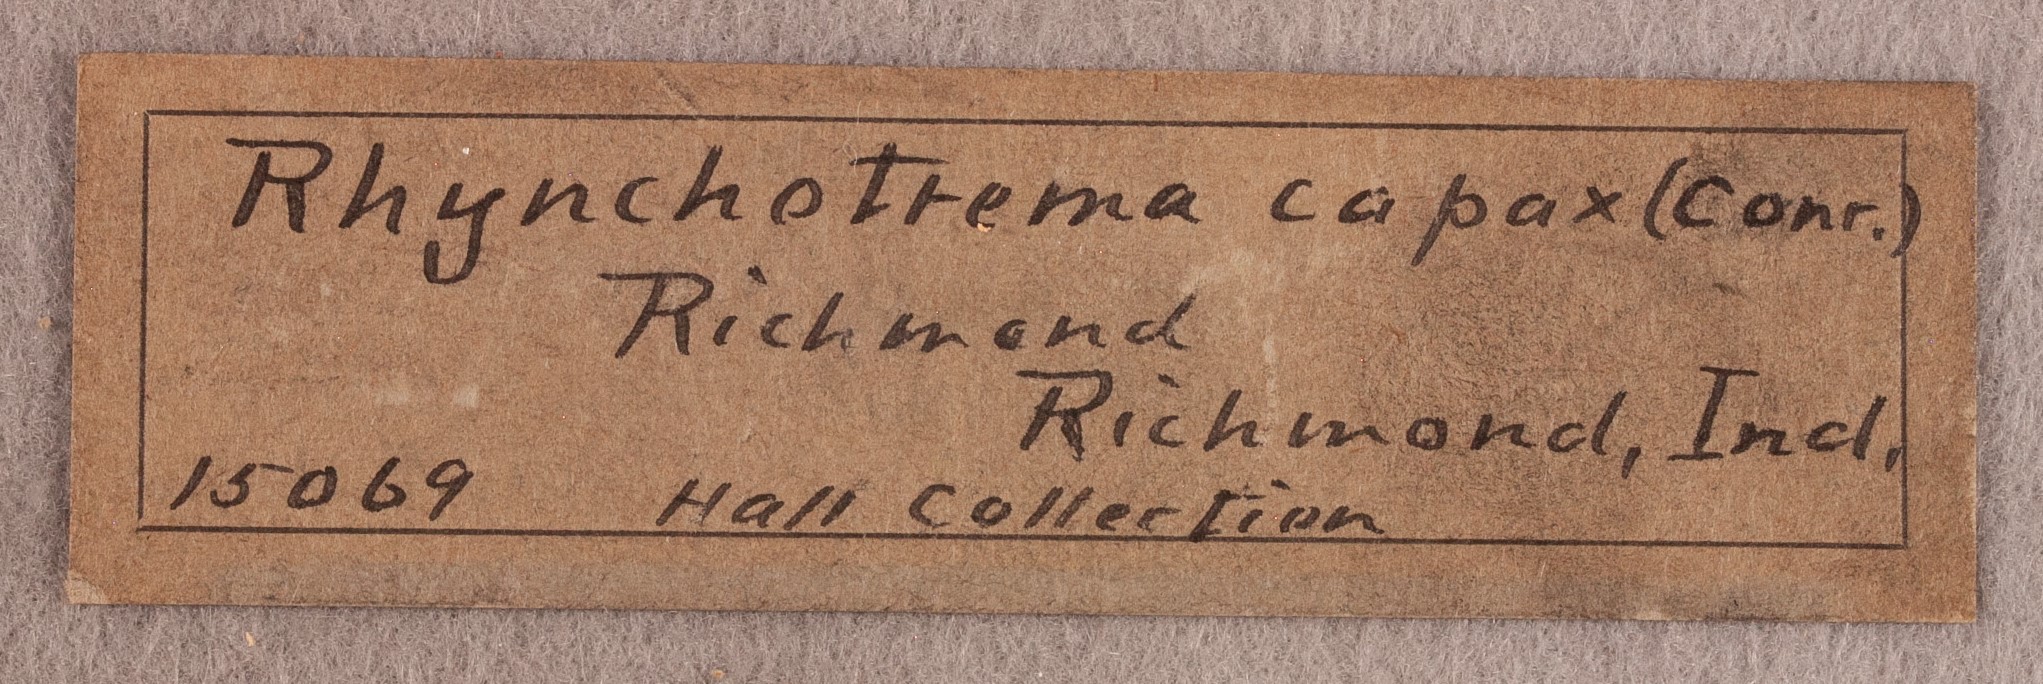 Rhynchotrema capax (Conr.)
Richmond
Richmond, Ind.
15069 Hall Collection